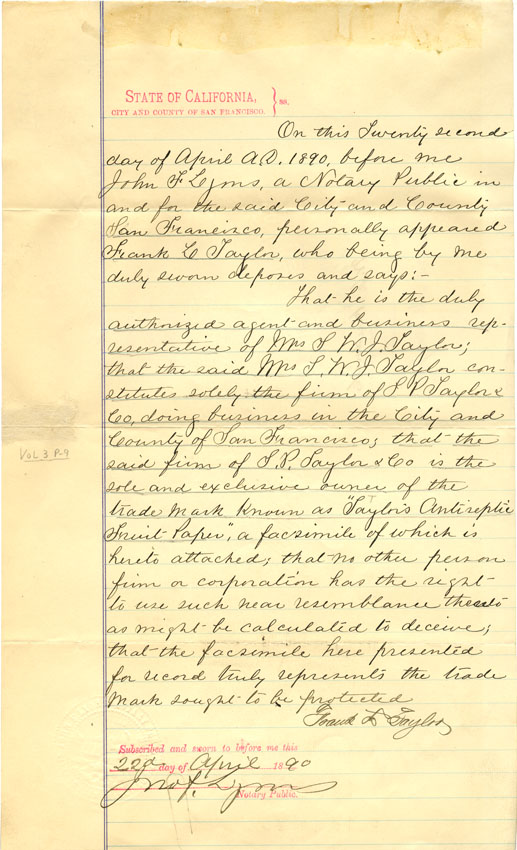 STATE OF CALIFORNIA,
CITY AND COUNTY OF SAN FRANCISCO. } ss.
On this Twenty second
day of April A.D. 1890, before me
John F Lyons, a Notary Public in
and for the said City and County
San Francisco, personally appeared
Frank L Taylor, who being by me
duly sworn deposes and says:-
That he is the duly
authorized agent and business rep-
resentative of Mrs S. W. J. Taylor;
that the said Mrs S. W. J. Taylor con-
stitutes solely the firm of S P Taylor &
Co, doing business in the City and
County of San Francisco; that the
said firm of S. P. Taylor & Co is the
sole and exclusive owner of the
trade mark known as "Taylor's Antiseptic
Fruit Paper", a facsimile of which is
hereto attached; that no other person
firm or corporation has the right
to use such near resemblance thereto
as might be calculated to deceive;
that the facsimile here presented
for record truly represents the trade
mark sought to be protected
Frank L Taylor
Subscribed and sworn to before me this
22d day of April 1890
Jno. F. Lyons
Notary Public.
Vol 3 P-9